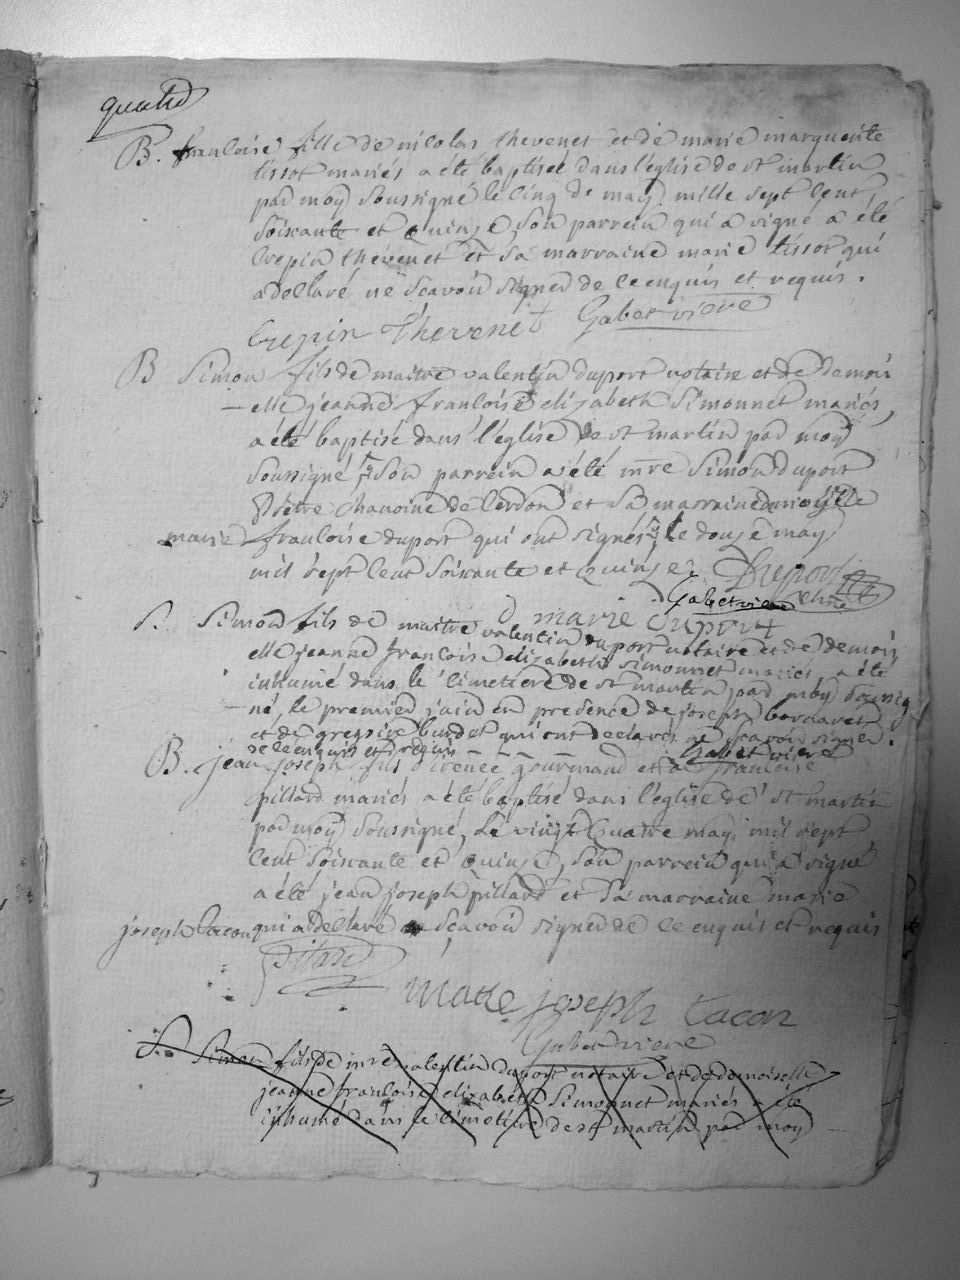 quatre
B. francoise fille de nicolas thevenet et de marie marguerite
tissot mariés a été baptisée dans l'église de st martin
par moy soussigné le cinq de may mille sept cent
soixante et quinze, son parrein qui a signé a été
Crepin thevenet et sa marraine marie tissot qui
a declaré ne scavoir signer de ce enquis et requis.
Crepin Thevenet Gabet vicre
B Simon fils de maitre valentin duport notaire et de demoi
-elle jeanne francoise elizabeth Simonnet mariés,
a été baptisé dans l'église de st martin par moy
soussigné son parrein a été mre Simon duport
Prêtre chanoine de Cerdon et sa marraine demoiselle
marie francoise duport qui ont signés le douze may
mil sept cent soixante et quinze. Duport
Gabet vicre chne
marie duport
S. Simon fils de maitre valentin duport notaire et de demoi
elle jeanne francoise elizabeth simonnet mariés, a été
inhumé dans le cimetiere de st martin par moy soussig
-né, le premier juin en presence de joseph
et de gregoire qui ont declarés ne scavoir signer.
de ce enquis et requis Gabet vicre
B. jean joseph fils d'irenée gourmand et de francoise
pillard mariés a été baptisé dans l'église de st martin
par moy soussigné, Le vingt quatre may, mil sept
cent soixante et quinze, son parrein qui a signé
a été jean joseph pillard et sa marraine marie
joseph tacon qui a declaré scavoir signer de ce enquis et requis
pillard
marie joseph tacon
Gabet vicre
S. Simon fils de mre valentin duport notaire et de demoiselle
jeanne francoise elizabeth Simonnet mariés a été
inhumé dans le cimetiere de st martin par moy